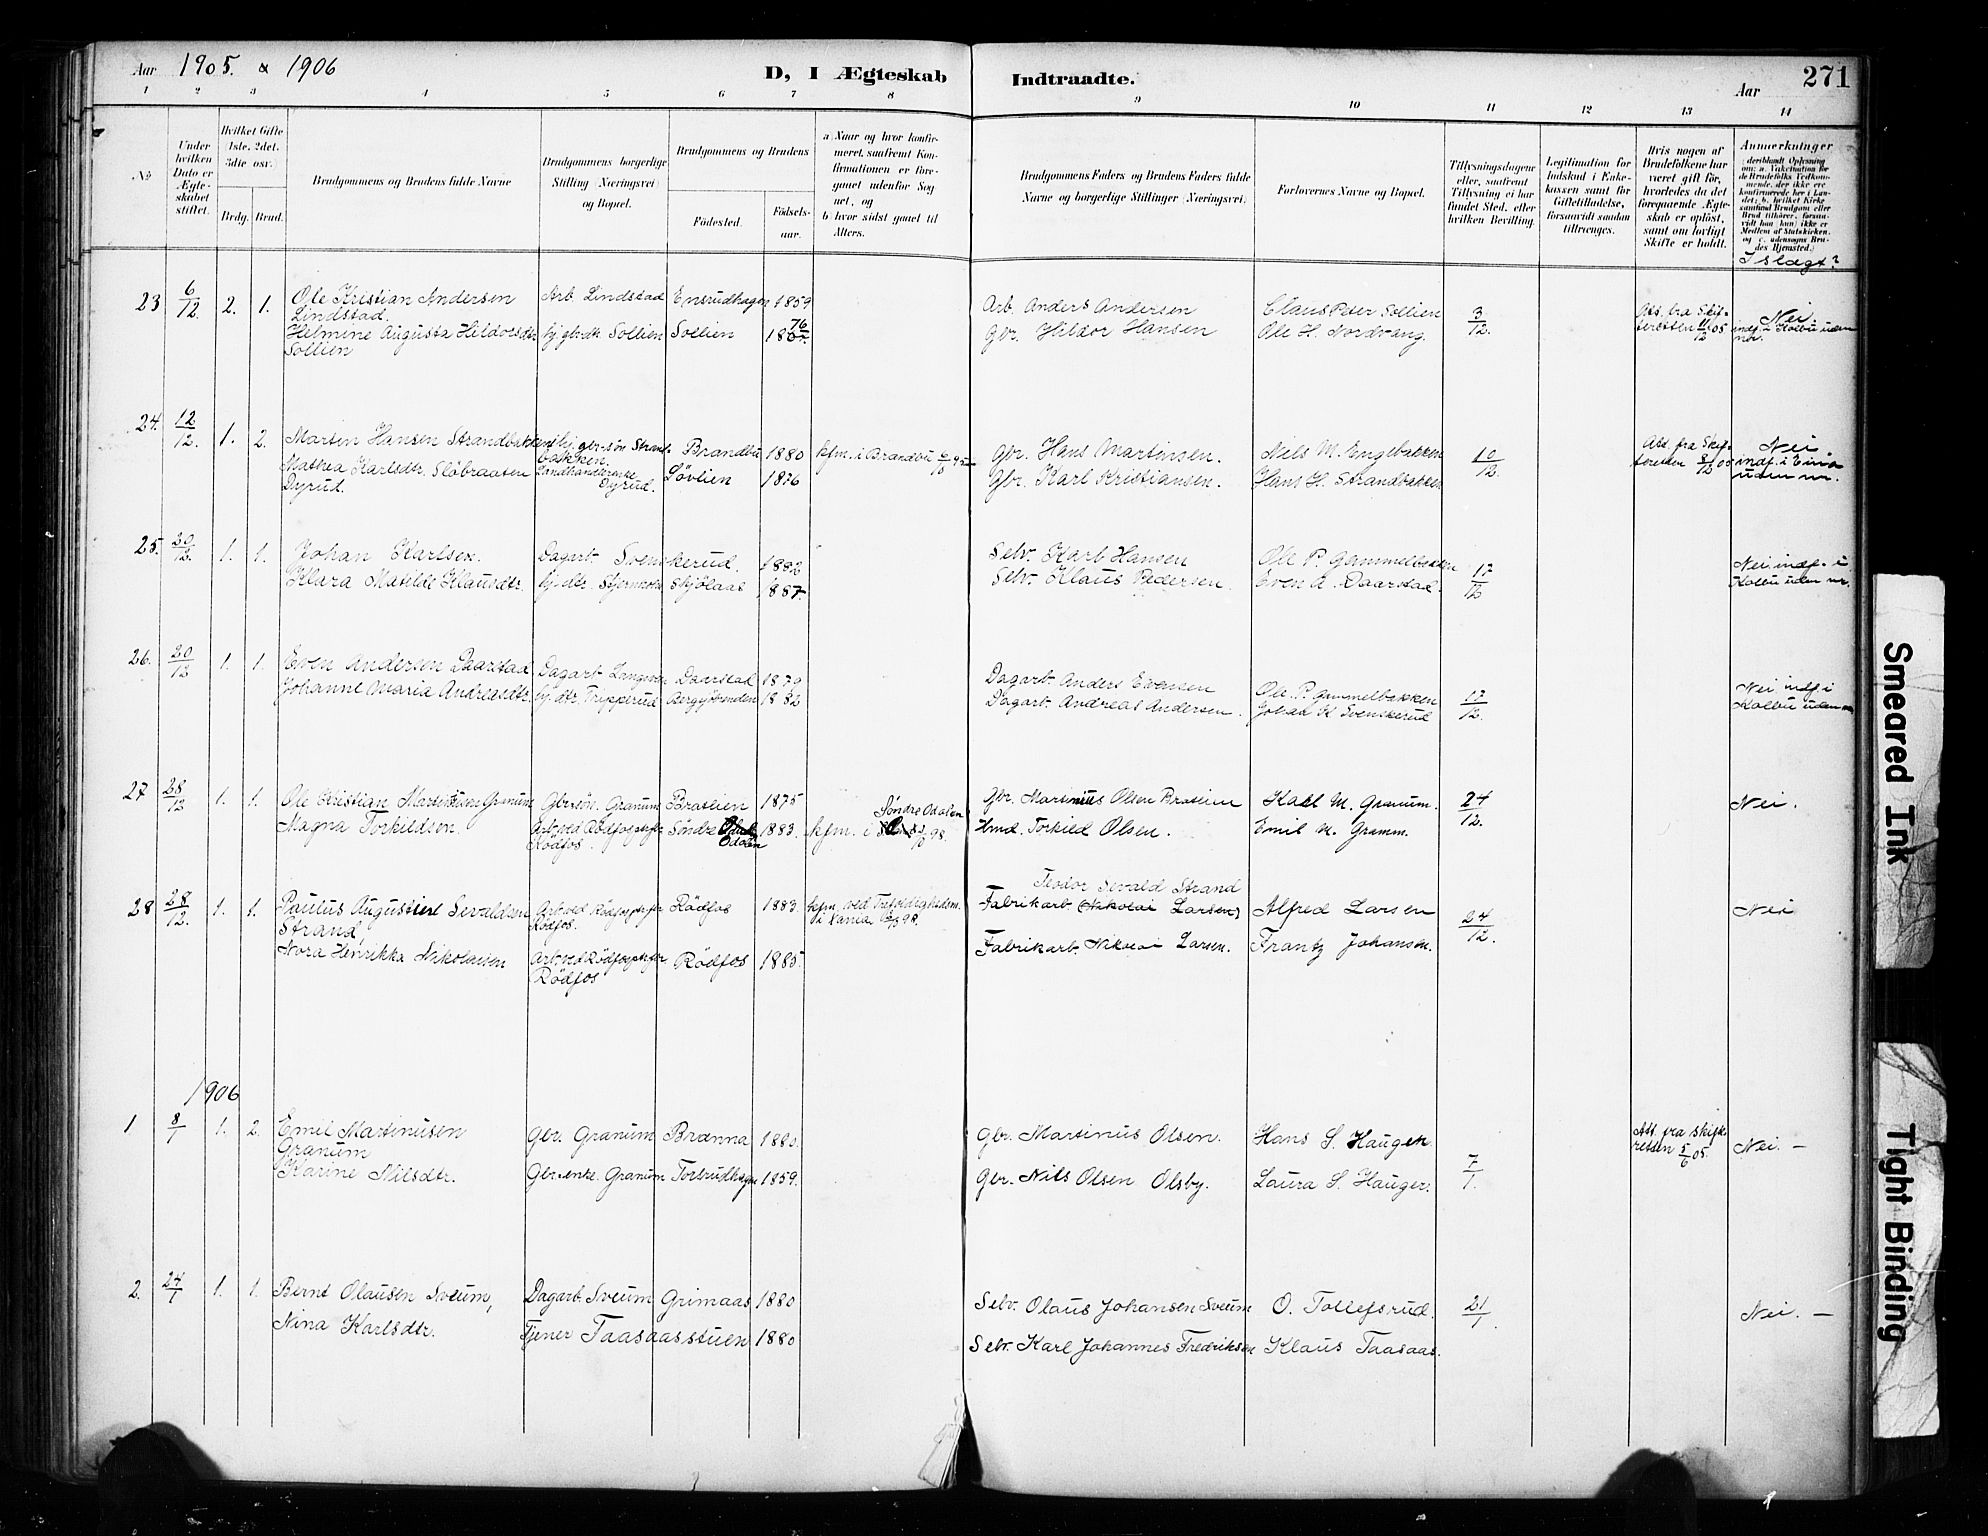 Aar 1905. & 1906
D, I Ægteskab Indtraadte.
Aar 271
1 2 3 4 5 6 7 8 9 10 11 12 13 14
No
Under hvilken Dato er Ægteskabet stiftet.
Hvilket Gifte 1ste. 2det. 3die osv.
Brdg. Brud.
Brudgommens og Brudens fulde Navne
Brudgommens borgerlige Stilling (Næringsvei) og Bopæl.
Brudgommens og Brudens
Födested. Födselsaar.
a) Naar og hvor konfirmeret, saafremt Konfirmationen er foregaaet udenfor Sognet, og
b) hvor sidst gaaet til Alters.
Brudgommens Faders og Brudens Faders fulde Navne og borgerlige Stillinger (Næringsvei).
Forlovernes Navne og Bopæl.
Tillysningsdagene eller, saafremt Tillysning ei har fundet Sted, efter hvilken Bevilling.
Legitimation for Indskud i Enkekassen samt for Giftetilladelse, forsaavidt saadan tiltrænges.
Hvis nogen af Brudefolkene har været gift för, hvorledes da det foregaaende Ægteskab er oplöst, samt om lovligt Skifte er holdt.
Anmerkninger
I slægt?
23 6/12 2. 1. Ole Kristian Andersen Arb. Lindstad Ensrudhagen 1859 Arb. Anders Andersen Claus Peter Sollien 3/12. Att. fra Skif- Nei.
Lindstad. teretten 11/12 05 indf. i Kolbu uden
Helmine Augusta Hildorsdtr. hj. gbrdtr. Sollien Sollien 1867. 76 Gbr. Hildor Hansen Ole H. Nordvang. nr.
Sollien
24. 12/12. 1. 2. Martin Hansen Strandbakken hj. gbr.sön Strand- Brandbu 1880 kfm. i Brandbu Gbr. Hans Martinsen. Niels M. Engebakken 10/12. Att. fra Skif- Nei
bakken. teretten 8/12 05 indf. i Eina
Mathea Karlsdtr. Slöbraaten Landhandlerenke Lövlien 1876 Gbr. Karl Kristiansen. Hans H. Strandbakken uden nr.
Dyrud. Dyrud.
25. 20/12. 1. 1. Johan Karlsen. Dagarb. Svenskerud. 1882 Selv. Karl Hansen Ole P. Gammelbakken 17/12 Nei. indf. i
Klara Matilde Klausdtr. hj. dtr. Skjölaas 1887. Selv. Klaus Pedersen. Even A. Daarstad. Kolbu uden nr.
26. 20/12 1. 1. Even Andersen Daarstad Dagarb. Daarstad 1879 Dagarb. Anders Evensen Ole P. Gammelbakken 17/12. Nei indf. i
Johanne Maria Andreasdtr. hj. dtr. Tripperud 1882 Dagarb. Andreas Andersen. Johan K. Svenskerud Kolbu uden nr.
27 28/12 1. 1. Ole Kristian Martinusen Granum Gbr.sön. Granum Brateien 1875 Gbr. Martinius Olsen Brateien Karl M. Granum. 24/12. Nei.
Söndre Odalen
Magna Torkildsen. Arb. ved Rödfos Söndre 1883. kfm. i 98. Hmd. Torkild Olsen. Emil M. Granum.
Rödfos. Odalen
28 28/12. 1. 1. Paulus Augustsen Sevaldsen Arb. ved Rödfos Rödfos 1883. kfm. ved Trefoldighedsm. Fabrikarb. (Nikolai Larsen) Alfred Larsen 24/12. Nei
Teodor Sevald Strand
Strand Rödfos. i Vania 98.
Nora Henrikka Nikolaisen Arb. ved Rödfos Rödfos 1885. Fabrikarb. Nikolai Larsen. Frantz Johansen.
Rödfos
1906
1 8/1 1. 2. Emil Martinusen Gbr. Granum Brænna 1880. Gbr. Martinus Olsen. Hans S. Haugen. 7/1. Att. fra skifte- Nei. —
Granum retten 5/6 05.
Karine Nilsdtr. Gbr.enke Granum Torbrudhagen 1859. Gbr. Nils Olsen Olsby. Laura S. Haugen.
2. 24/1 1. 1. Bernt Olausen Sveum, Dagarb. Sveum Grimaas 1880 Selv. Olaus Johansen Sveum O. Tollefsrud. 21/1. Nei. —
Nina Karlsdtr. Tjener Taasaasstuen 1880 Selv. Karl Johannes Fredriksen Klaus Taasaas.
Smeared Ink
Tight Binding